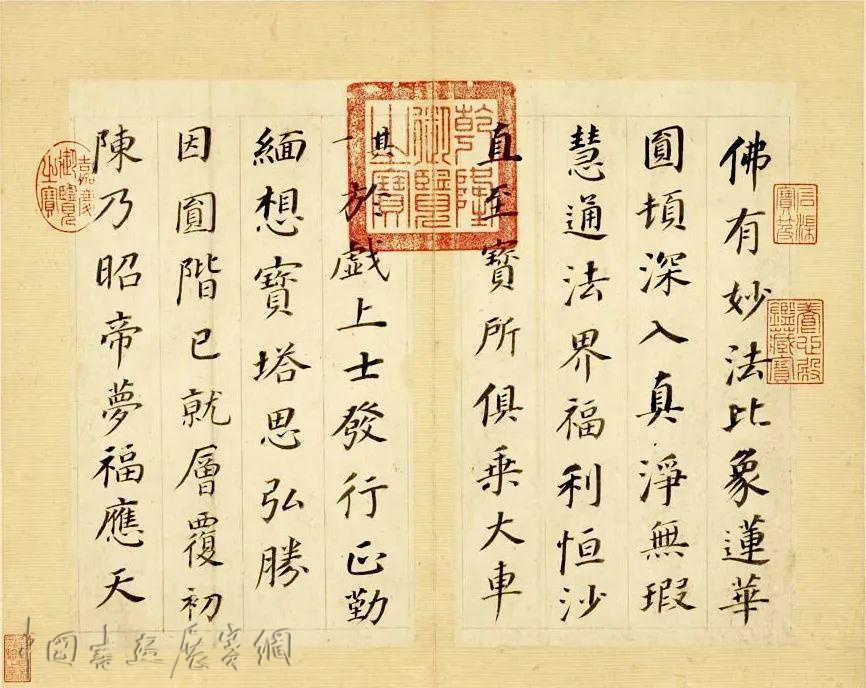 佛有妙法比象蓮華
圓頓深入真淨無瑕
慧通法界福利恒沙
直至寶所俱乗大車
其一於戲上士發行正勤
緬想寶塔思弘勝
因圓階已就層覆初
陳乃昭帝夢福應天
乾隆御覽之寶
嘉慶御覽之寶
石渠寶笈
養心殿鑑藏寶